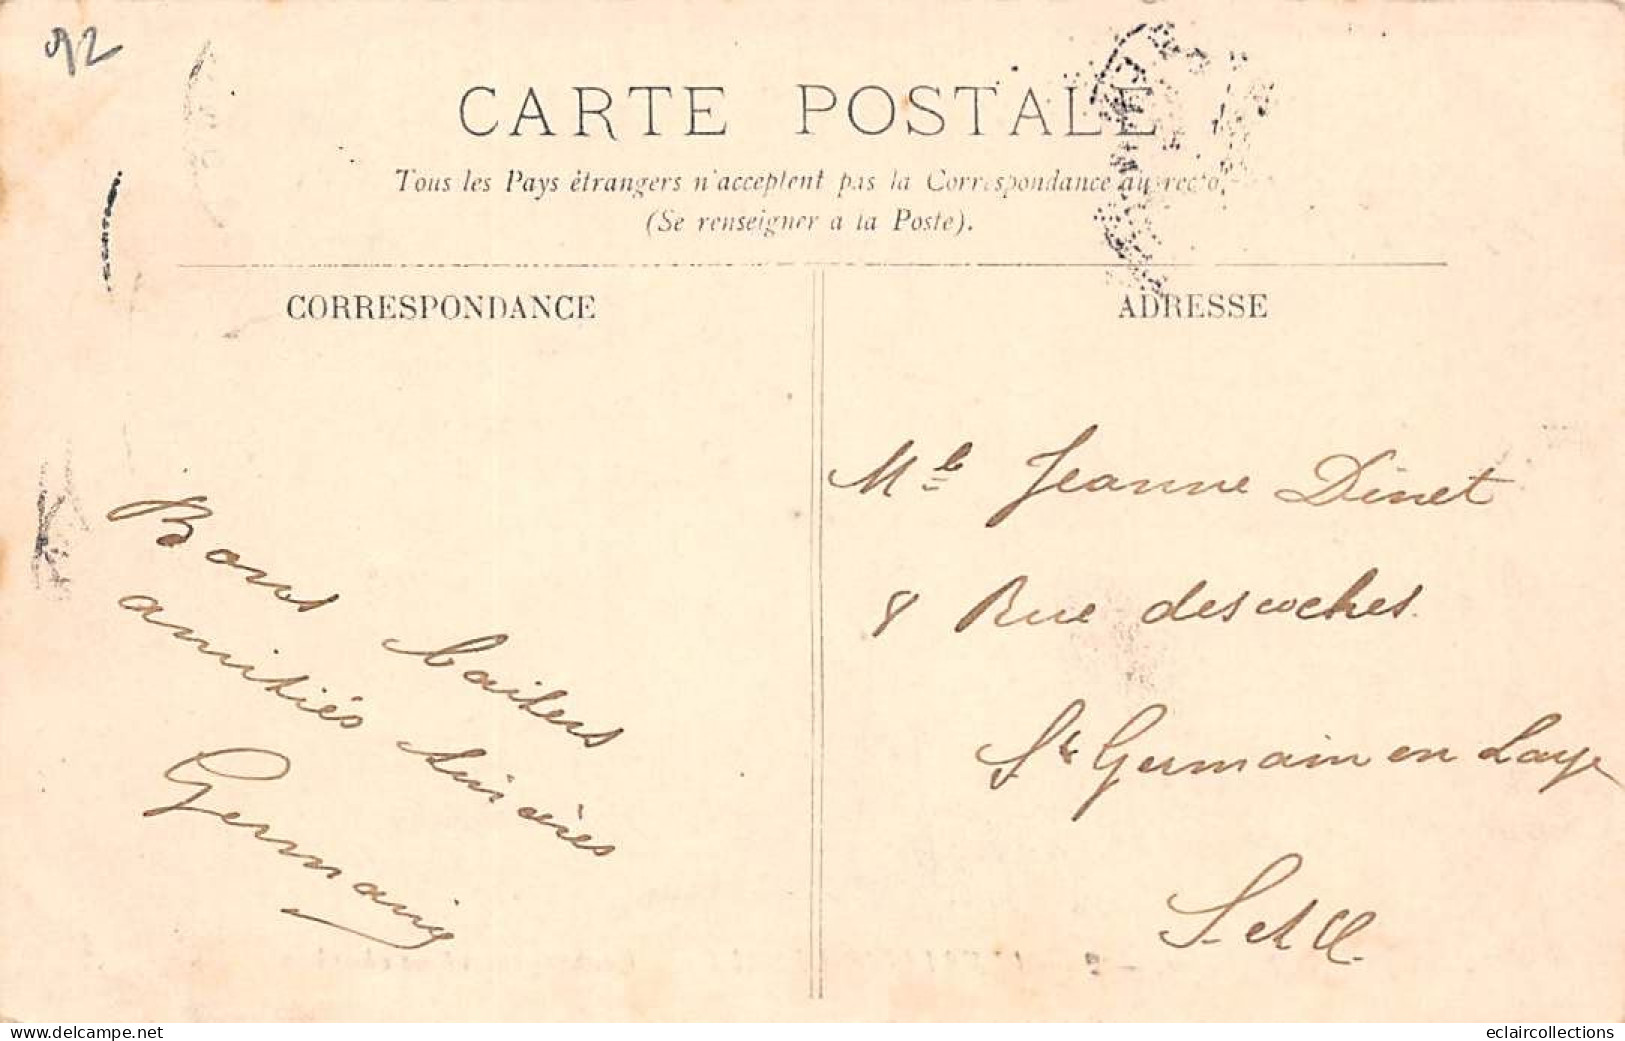 92
CARTE POSTALE
Tous les Pays étrangers n'acceptent pas la Correspondance au recto,
(Se renseigner à la Poste).
CORRESPONDANCE
ADRESSE
Bons baisers
amitiés sincères
Germaine
Mle Jeanne Dinet
8 Rue des coches
St Germain en Laye
S. et O.
www.delcampe.net
eclaircollections